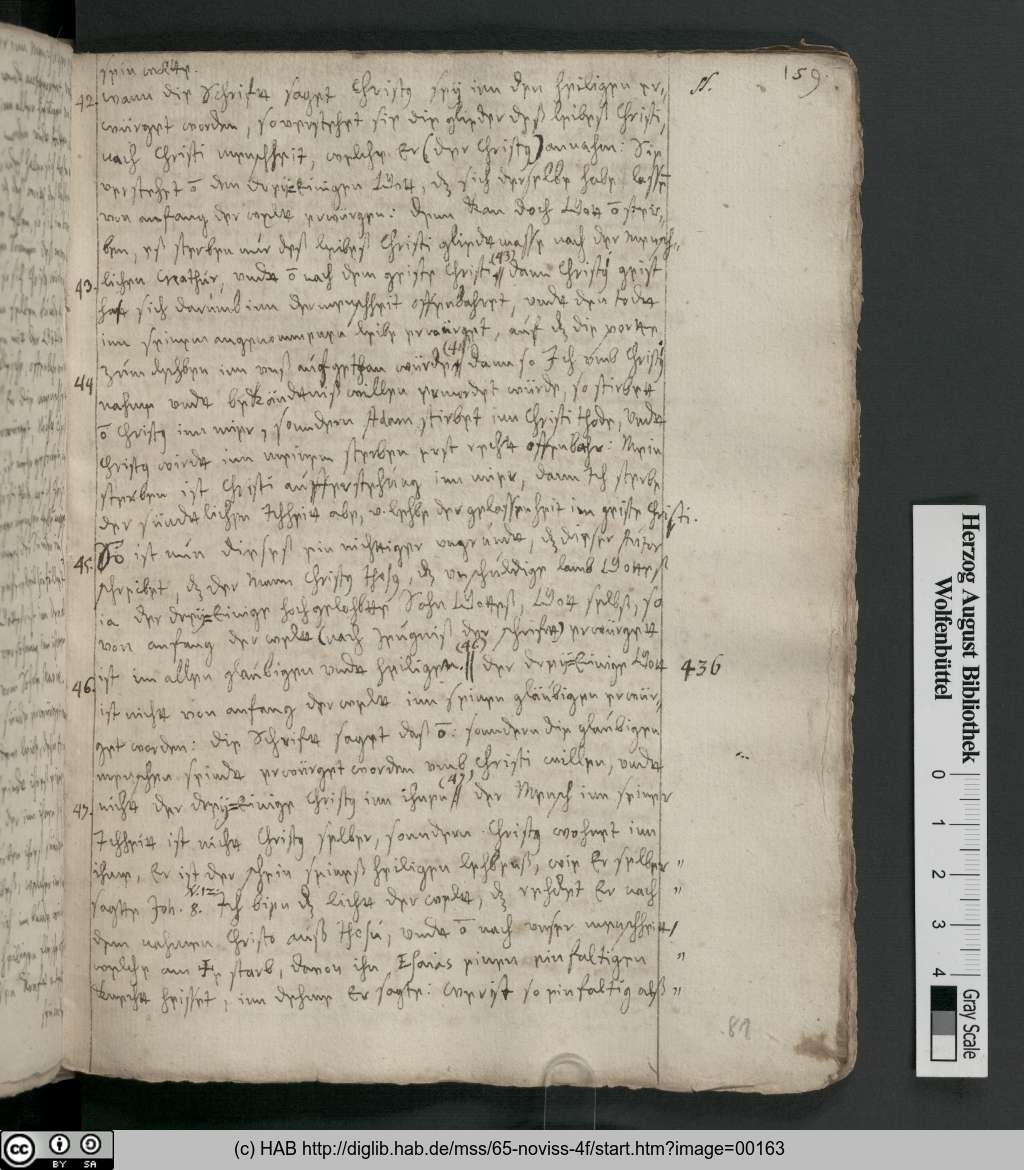 sein wolte. 159.
42. wann die Schrifft saget Christ9 seÿ inn den heiligen er- N.
würget worden, so verstehet sie die glieder deß leibeß Christi,
nach Christi menschheit, welche Er (der Christ9) annahm: Sie
verstehet ō den dreÿ=Einigen Gott, dz sich derselbe habe lassē
von anfang der welt erwürgen: denn kan doch Gott ō ster-
ben, eß sterben nur deß leibeß Christi gliedmasse nach der mensch-
43. lichen Creathur, undt ō nach dem geiste Christi (43) // dann Christ9 geist
hatt sich darumb inn der menschheit offenbahret, undt den todt
inn seinem angenommenen leibe erwürget, auf dz die porte
zum leben inn unß aufgethan würde (44) // dann so Ich umb Christ9
44 nahme undt bekändtniß willen ermordet würde, so stirbet
ō Christ9 inn mier, sonndern Adam stirbet inn Christi thode, undt
Christ9 wirdt inn meinem sterben erst recht offenbahr: Mein
sterben ist Christi aufferstehung inn mier, dann Ich sterbe
der sündtlichen Ichheit abe, v. lebe der gelassenheit im geiste Christi.
45. So ist nun dieseß ein nichtiger ungrundt, dz dieser Autor
schreibet, dz der Mann Christ9 Ihes9, dz unschuldige lamb Gotteß
ia der dreÿ=Einige hochgelobte Sohn Gotteß, Gott selbst, so
von anfang der welt (nach zeugniß der schrifft) erwürget
46. ist im allen glaubigen undt heiligen. (46) // der dreÿ=Einige Gott 436
ist nicht von anfang der welt inn seinen gläubigen erwür-
get worden: die Schrifft saget daß ō: sonndern die glaubigen
menschen seindt erwürget worden umb Christi willen, undt
47. nicht der dreÿ=Einige Christ9 inn ihnen (47) // der Mensch inn seiner
Ichheit ist nicht Christ9 selber, sonndern Christ9 wohnet inn
ihme, Er ist der schein seineß heiligen lebenß, wie Er selber "
sagte Joh. 8. v. 12. Ich binn dz licht der welt, dz redet Er nach "
dem nahmen Christo auß Ihesu, undt ō nach unser menschheit,
welche am ✝ starb, davon ihn Esaias einen einfaltigen "
knecht heisset, inn dehme Er sagte: Wer ist so einfaltig alß "
81
Herzog August Bibliothek
Wolfenbüttel
0 1 2 3 4
Gray Scale
CC BY SA
(c) HAB http://diglib.hab.de/mss/65-noviss-4f/start.htm?image=00163